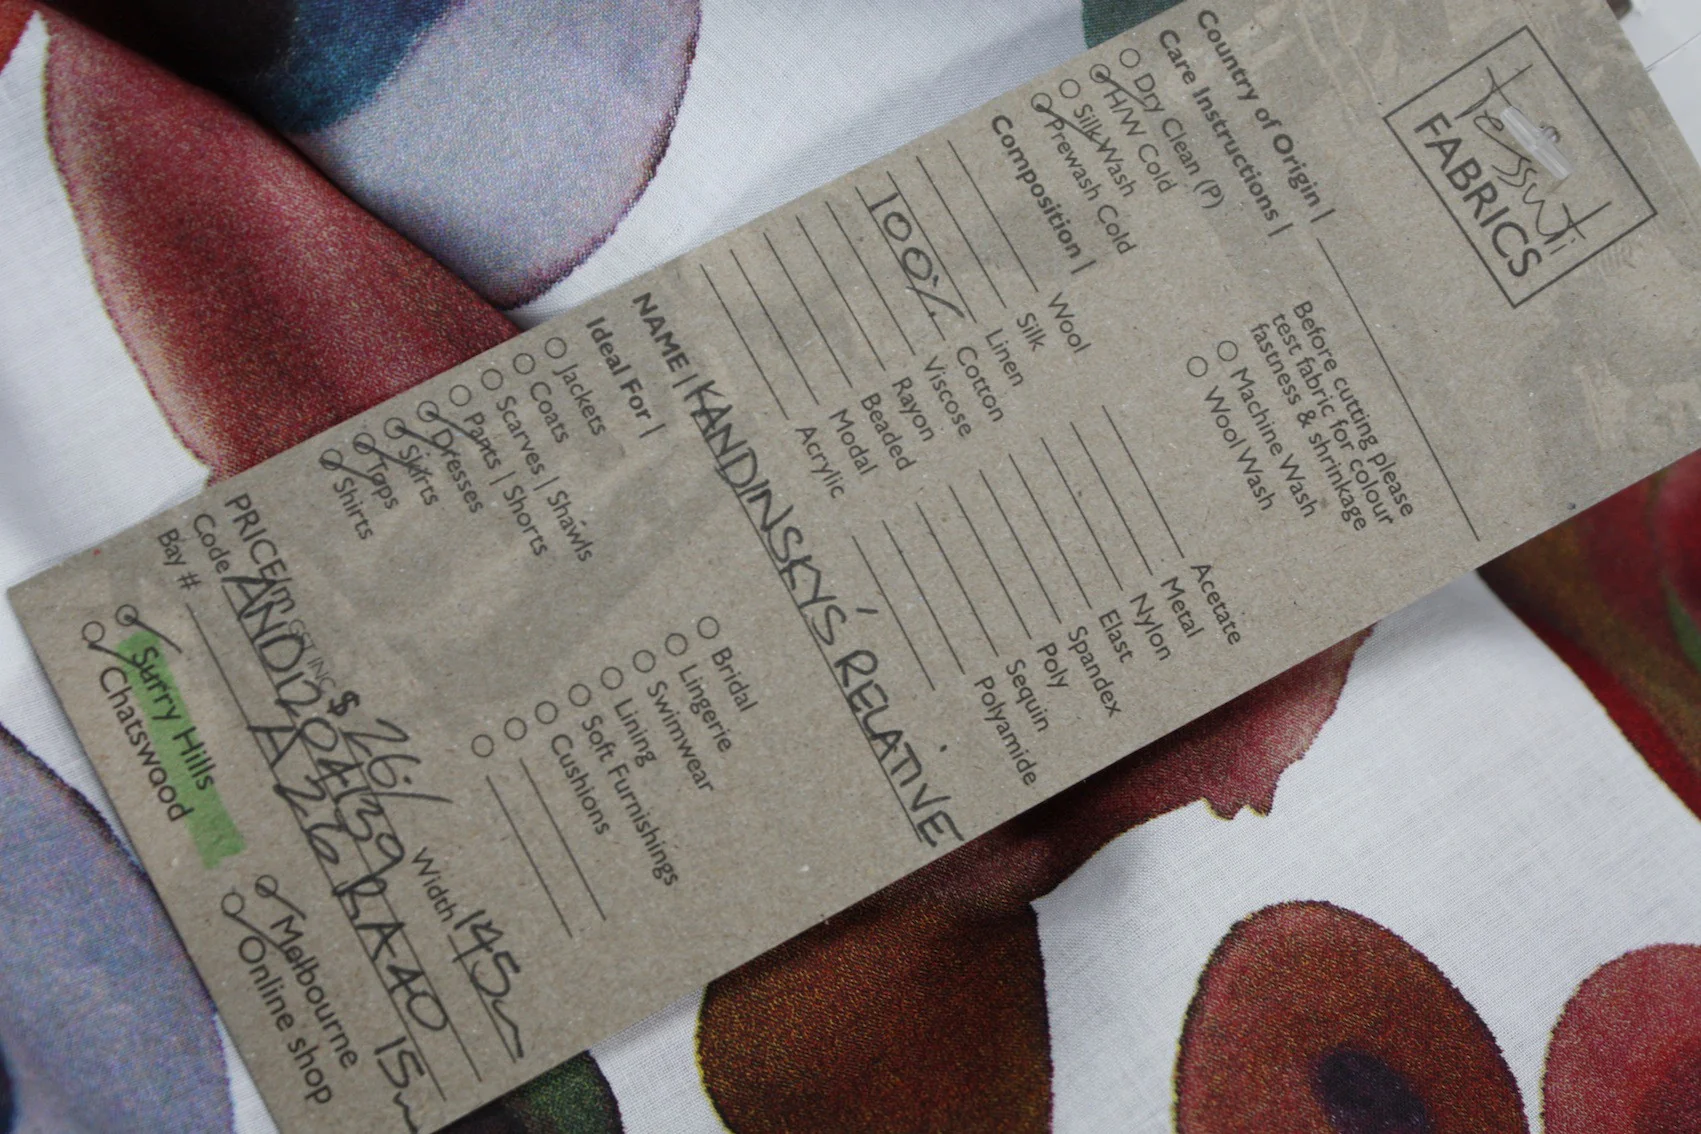 Tessuti
FABRICS
Country of Origin |
Care Instructions |
Dry Clean (P)
H/W Cold
Silk Wash
Prewash Cold
Machine Wash
Wool Wash
Before cutting please
test fabric for colour
fastness & shrinkage
Composition |
Wool
Silk
Linen
100% Cotton
Viscose
Rayon
Beaded
Modal
Acrylic
Acetate
Metal
Nylon
Elast
Spandex
Poly
Sequin
Polyamide
NAME | KANDINSKYS' RELATIVE
Ideal For |
Jackets
Coats
Scarves | Shawls
Pants | Shorts
Dresses
Skirts
Tops
Shirts
Bridal
Lingerie
Swimwear
Lining
Soft Furnishings
Cushions
PRICE/m GST INC $ 26./ Width 145
Code AND1204139 RA40
Bay # A26 15m
Surry Hills
Chatswood
Melbourne
Online shop